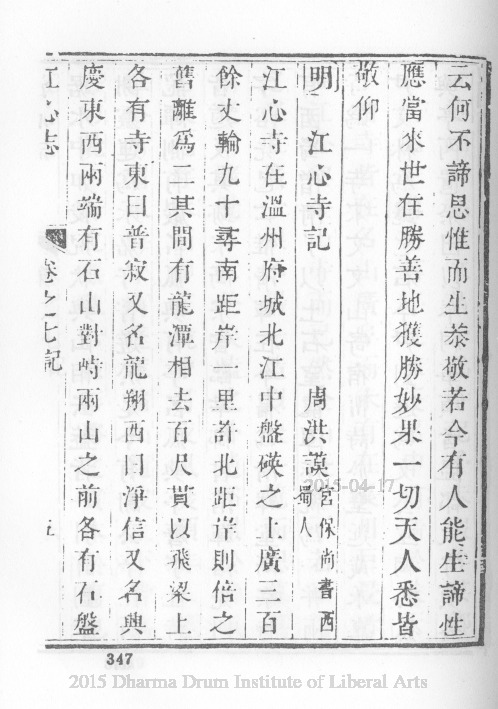 云何不諦思惟而生恭敬若今有人能生諦性
應當來世在勝善地獲勝妙果一切天人悉皆
敬仰
明 江心寺記 周洪謨宮保尚書西蜀人
江心寺在溫州府城北江中盤礙之上廣三百
餘丈輪九十尋南距岸一里許北距岸則倍之
舊離爲二其間有龍潭相去百尺貫以飛梁上
各有寺東曰普寂又名龍翔西曰淨信又名興
慶東西兩端有石山對峙兩山之前各有石盤
江心志 卷之七記 五
2015-04-17
347
2015 Dharma Drum Institute of Liberal Arts